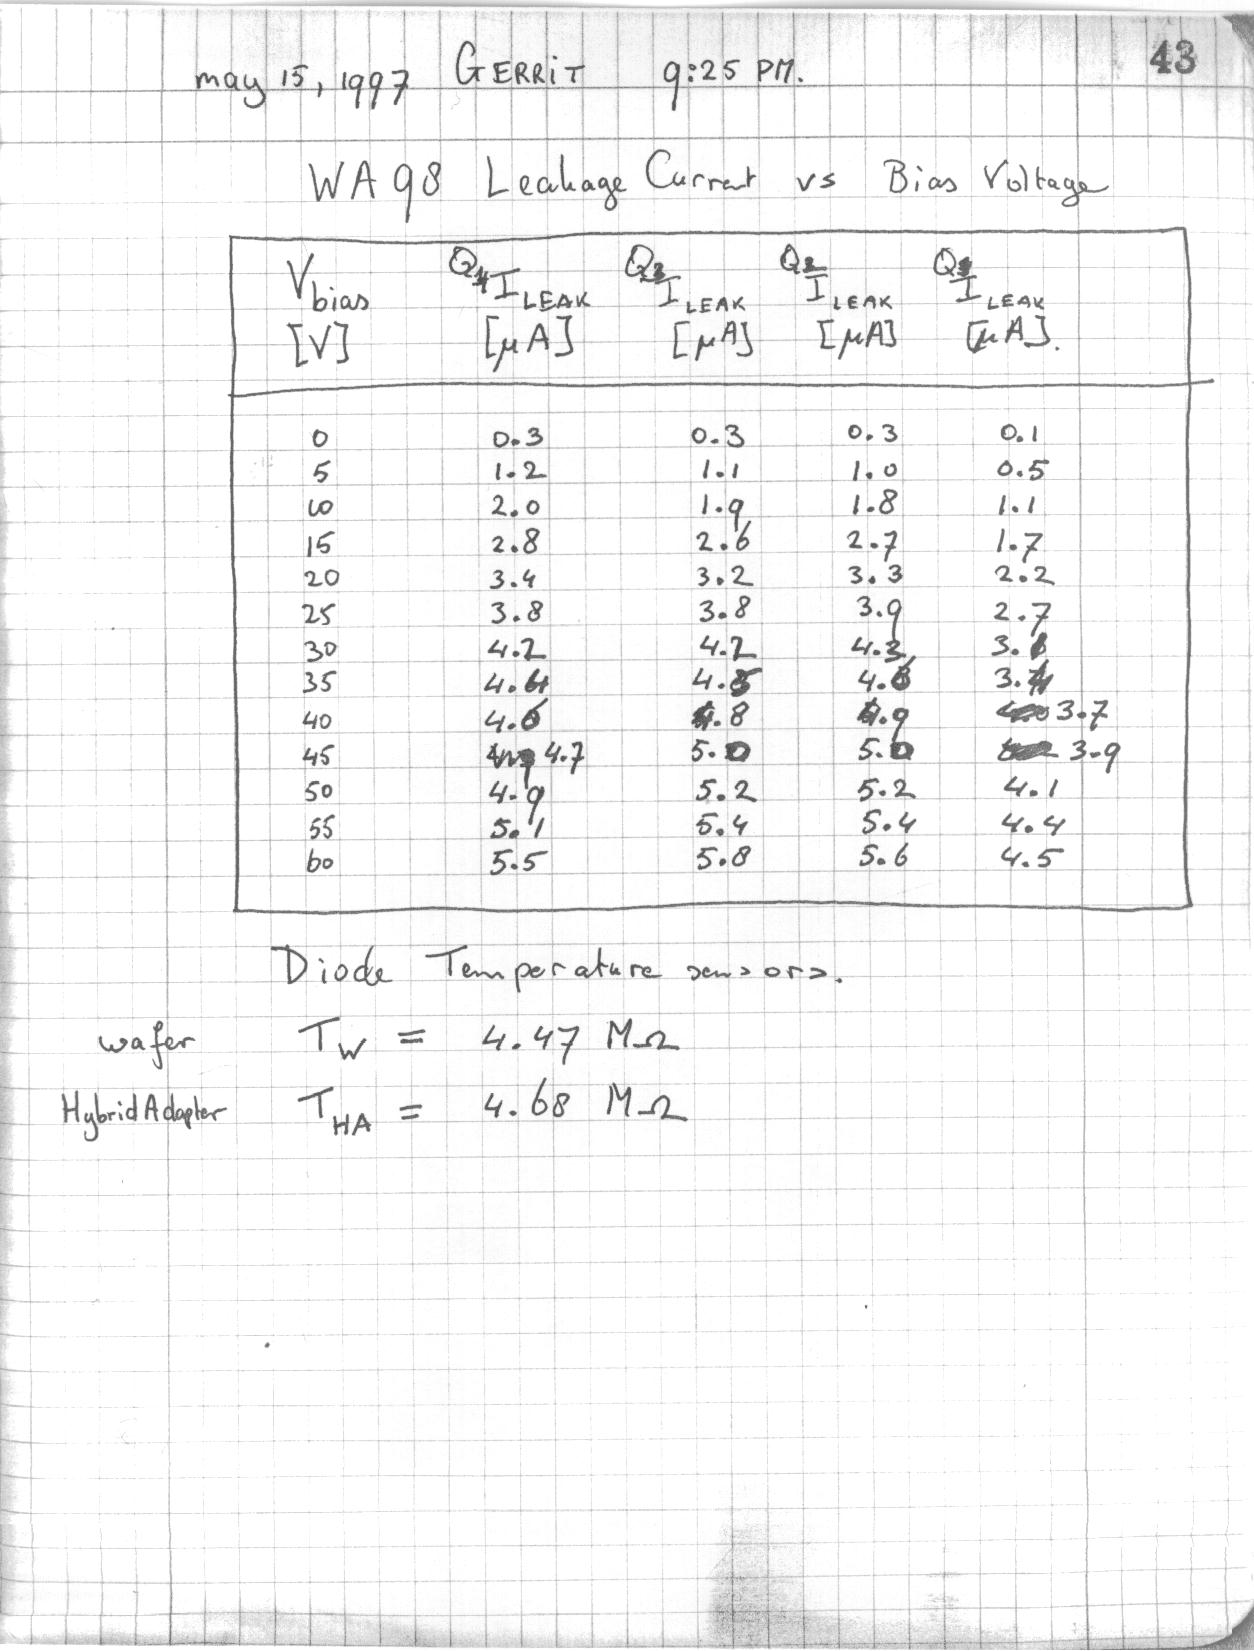 43
may 15, 1997 GERRIT 9:25 PM.
WA98 Leakage Current vs Bias Voltage
Vbias Q4 ILEAK Q3 ILEAK Q2 ILEAK Q1 ILEAK
[V] [μA] [μA] [μA] [μA].
0 0.3 0.3 0.3 0.1
5 1.2 1.1 1.0 0.5
10 2.0 1.9 1.8 1.1
15 2.8 2.6 2.7 1.7
20 3.4 3.2 3.3 2.2
25 3.8 3.8 3.9 2.7
30 4.2 4.2 4.3 3.1
35 4.4 4.5 4.6 3.4
40 4.6 4.8 4.9 3.7
45 4.7 5.0 5.0 3.9
50 4.9 5.2 5.2 4.1
55 5.1 5.4 5.4 4.4
60 5.5 5.8 5.6 4.5
Diode Temperature sensors.
wafer TW = 4.47 MΩ
Hybrid Adapter THA = 4.68 MΩ